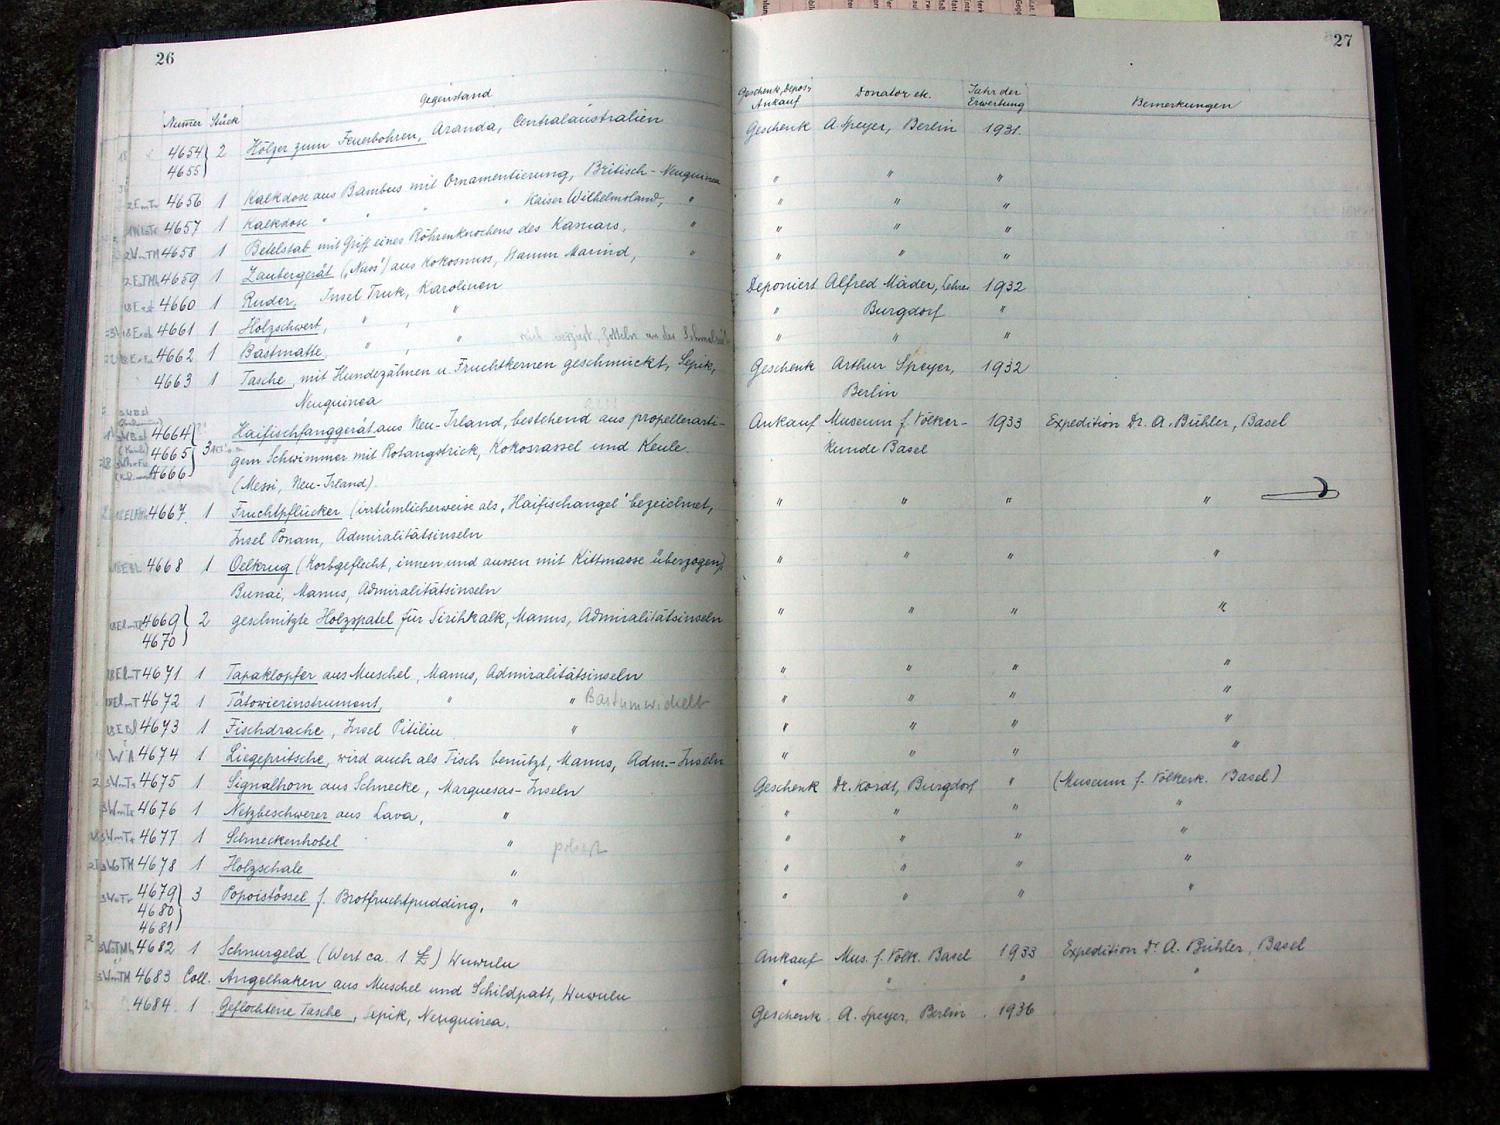 26
Gegenstand
Numer Stück
4654 2 Hölzer zum Feuerbohren, Aranda, Centralaustralien
4655
4656 1 Kalkdose aus Bambus mit Ornamentierung, Britisch-Neuguinea
4657 1 Kalkdose " " " Kaiser Wilhelmsland, "
4658 1 Betelstab mit Griff eines Röhrenknochens des Kasuars, "
4659 1 Zaubergerät („Nuos") aus Kokosnuss, Stamm Marind, "
4660 1 Ruder, Insel Truk, Karolinen
4661 1 Holzschwert, " , "
4662 1 Bastmatte, " , "
4663 1 Tasche, mit Hundezähnen u. Fruchtkernen geschmückt, Sepik,
Neuguinea
4664 Haifischfanggerät aus Neu-Irland, bestehend aus propellerarti-
4665 3 gem Schwimmer mit Rotangstrick, Kokosrassel und Keule.
4666 (Messi, Neu-Irland).
4667 1 Fruchtpflücker (irrtümlicherweise als „Haifischangel" bezeichnet,
Insel Ponam, Admiralitätsinseln
4668 1 Oelkrug (Korbgeflecht, innen und aussen mit Kittmasse überzogen)
Bunai, Manus, Admiralitätsinseln
4669 2 geschnitzte Holzspatel für Sirihkalk, Manus, Admiralitätsinseln
4670
4671 1 Tapaklopfer aus Muschel, Manus, Admiralitätsinseln
4672 1 Tätowierinstrument, " " Bastumwickelt
4673 1 Fischdrache, Insel Pitiliu "
4674 1 Liegepritsche, wird auch als Tisch benützt, Manus, Adm.-Inseln
4675 1 Signalhorn aus Schnecke, Marquesas-Inseln
4676 1 Netzbeschwerer aus Lava, "
4677 1 Schneckenhobel "
4678 1 Holzschale "
4679 3 Popoistössel f. Brotfruchtpudding, "
4680
4681
4682 1 Schnurgeld (Wert ca. 1 £) Wuwulu
4683 Coll. Angelhaken aus Muschel und Schildpatt, Wuwulu
4684 1 Geflochtene Tasche, Sepik, Neuguinea.
27
Geschenk, Depos. Ankauf Donator etc. Jahr der Erwerbung Bemerkungen
Geschenk A. Speyer, Berlin 1931.
" " "
" " "
" " "
" " "
Deponiert Alfred Mäder, Lehrer 1932
" Burgdorf "
" " "
Geschenk Arthur Speyer, 1932
Berlin
Ankauf Museum f. Völker- 1933 Expedition Dr. A. Bühler, Basel
kunde Basel
" " " "
" " " "
" " " "
" " " "
" " " "
" " " "
" " " "
Geschenk Dr. Kordt, Burgdorf " (Museum f. Völkerk. Basel)
" " " "
" " " "
" " " "
" " " "
Ankauf Mus. f. Völk. Basel 1933 Expedition Dr A. Bühler, Basel
" " " "
Geschenk A. Speyer, Berlin 1936